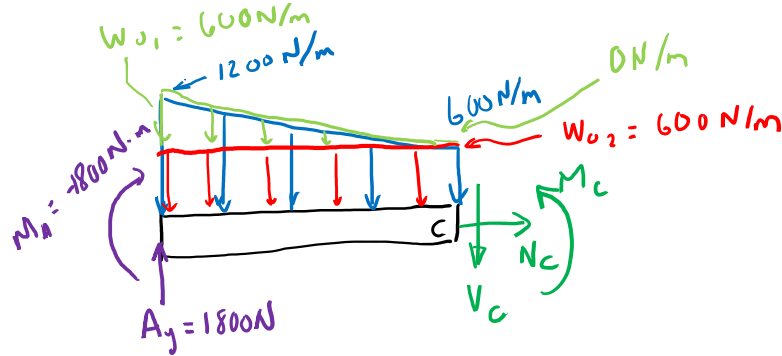 Wo₁ = 600N/m
1200N/m
0N/m
600N/m
Wo₂ = 600N/m
M_A = -1800N·m
C
M_C
N_C
V_C
A_y = 1800N